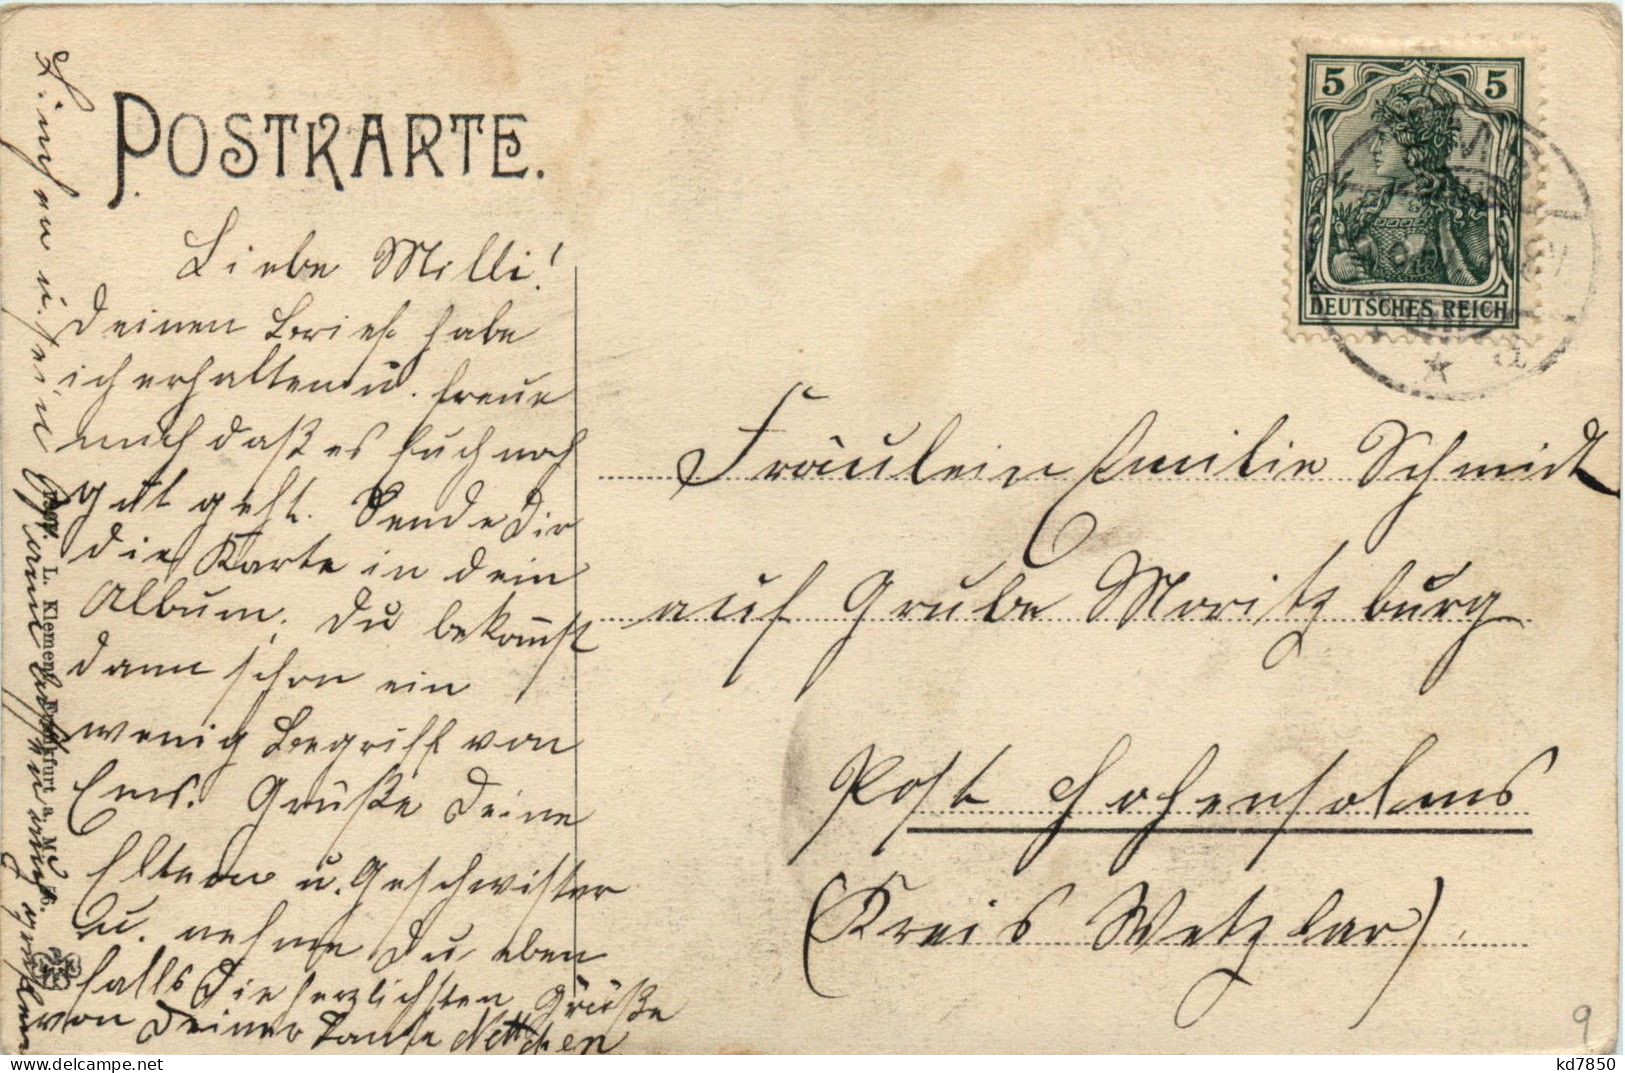 POSTKARTE.
5 5
DEUTSCHES REICH
Liebe Milli!
Deinen Brief habe
ich erhalten u. freue
mich daß es Euch noch
gut geht. Sende Dir
die Karte in dein
Album, Du bekommst
dann schon ein
wenig Begriff von
Ems. Grüße Deine
Eltern u. Geschwister
u. nehme Du eben
falls die herzlichsten Grüße
von Deiner Tante Nettchen
Linchen u. sein
grüßen
Verl. L. Klement, Frankfurt a. M.
Fräulein Emilie Schmidt
auf Grube Moritzburg
Post Hohensolms
(Kreis Wetzlar)
9
kd7850